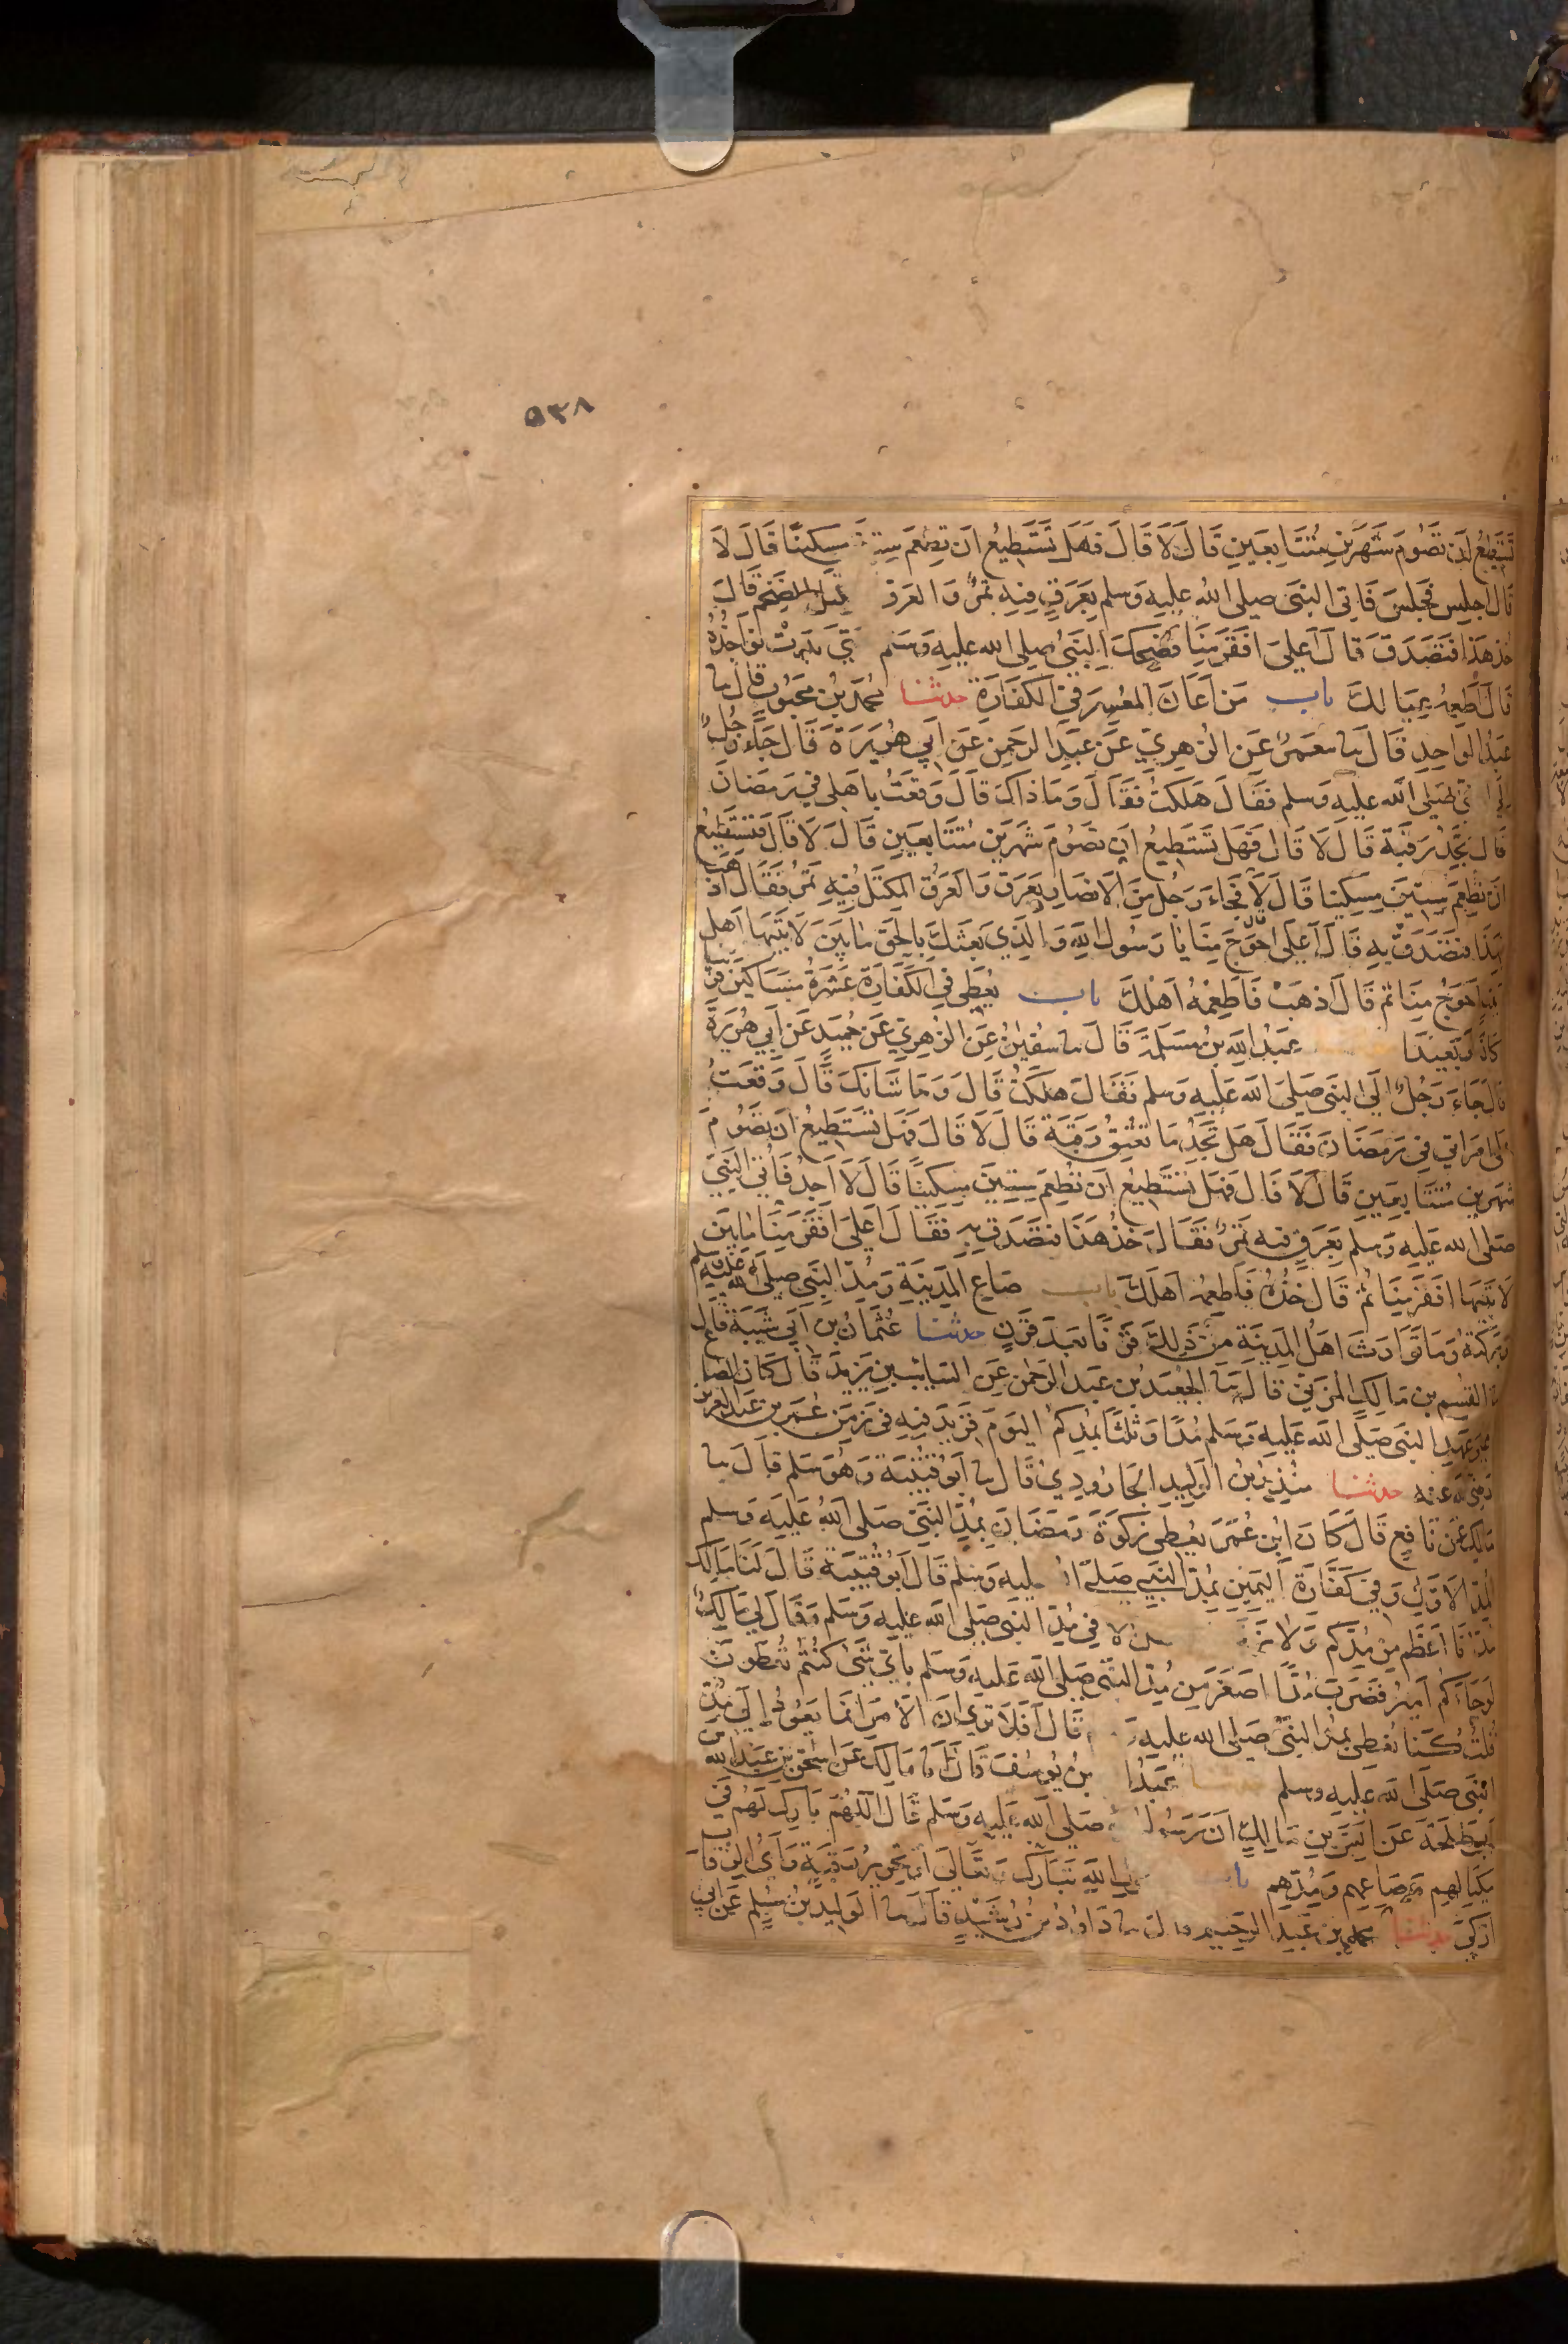 ٥٣٨
تَسْتَطِيعُ اَنْ تَصُومَ شَهْرَيْنِ مُتَتَابِعَيْنِ قَالَ لَا قَالَ فَهَلْ تَسْتَطِيعُ اَنْ تُطْعِمَ مِسْكِينًا قَالَ لَا
قَالَ اجلِسْ فَجَلَسَ فَاُتِىَ النبىَ صلى الله عليه وسلم بِعَرَقٍ فِيهِ تَمْرٌ وَالعَرَق المِكتَلُ الضَّخم قَالَ
خُذ هَذَا فَتَصَدَّقْ قَالَ اَعَلَى اَفْقَرَ مِنَّا فَضَحِكَ النَّبِىُّ صلى الله عليه وسلم بَدَتْ نَوَاجِذُهُ
قَالَ اَطْعِمْهُ عِيَالَكَ باب مَنْ اَعَانَ المُعْسِرَ فِي الكَفَّارَةِ حدثنا محمد بْنُ مَحْبُوبٍ قَالَ نا
عَبْدُ الوَاحِدِ قَالَ نا مَعْمَرٌ عَنِ الزُّهْرِيِّ عَنْ عَبْدِ الرحمنِ عَنْ اَبِي هُرَيْرَةَ قَالَ جَاءَ رَجُلٌ
صَلى الله عليه وسلم فَقَالَ هَلَكْتُ فَقَالَ وَمَا ذَاكَ قَالَ وَقَعْتُ بِاَهْلِى فِي رَمَضَانَ
قَالَ تَجِدُ رَقَبَةً قَالَ لَا قَالَ فَهَلْ تَسْتَطِيعُ اَنْ تَصُومَ شَهْرَيْنِ مُتَتَابِعَيْنِ قَالَ لَا قَالَ فَتَسْتَطِيعُ
اَنْ تُطْعِمَ سِتِّينَ مِسْكِينا قَالَ لَا فَجَاءَ رَجُلٌ مِنَ الاَنْصَارِ بِعَرَقٍ وَالعَرَقُ المِكتَلُ فِيهِ تَمْرٌ فَقَالَ اذْهَبْ
بِهَذَا فَتَصَدَّقْ بِهِ قَالَ اَعَلَى اَحْوَجَ مِنَّا يَا رَسُولَ اللهِ وَالَّذِي بَعَثَكَ بِالحَقِّ مَا بَيْنَ لَابَتَيْهَا اَهْلُ
بَيْتٍ اَحْوَجُ مِنَّا ثم قَالَ اذهَبْ فَاَطْعِمْهُ اَهْلَكَ باب يُعْطِى فِي الكَفَّارَةِ عَشَرَةَ مَسَاكِينَ قَرِيبًا
كَانَ اَوْ بَعِيدًا عَبْدُ اللهِ بْنُ مَسْلَمَةَ قَالَ نا سُفْيٰنُ عَنِ الزُّهْرِيِّ عَنْ حُمَيْدٍ عَنْ اَبِي هُرَيْرَةَ
قَالَ جَاءَ رَجُلٌ اِلَى النبىِّ صَلى الله عَليه وَسلم فَقَالَ هَلَكْتُ قَالَ وَمَا شَانُكَ قَالَ وَقَعْتُ
عَلَى امْرَاَتِي فِي رَمَضَانَ فَقَالَ هَلْ تَجِدُ مَا تُعْتِقُ رَقَبَةً قَالَ لَا قَالَ فَهَلْ تَسْتَطِيعُ اَنْ تَصُومَ
شَهْرَيْنِ مُتَتَابِعَيْنِ قَالَ لَا قَالَ فَهَلْ تَسْتَطِيعُ اَنْ تُطْعِمَ سِتِّينَ مِسْكِينًا قَالَ لَا اَجِدُ فَاُتِىَ النَّبِىُّ
صَلى الله عَليه وَسلم بِعَرَقٍ فِيهِ تَمْرٌ فَقَالَ خُذْ هَذَا فَتَصَدَّقْ بِهِ فَقَالَ اَعَلَى اَفْقَرَ مِنَّا مَا بَيْنَ
لَابَتَيْهَا اَفْقَرُ مِنَّا ثُمَّ قَالَ خُذْهُ فَاَطْعِمْهُ اَهْلَكَ باب صَاعِ المَدِينَةِ وَمُدِّ النَّبِىِّ صلى الله عليه وسلم
وَبَرَكَتِهِ وَمَا تَوَارَثَ اَهْلُ المَدِينَةِ مِنْ ذَلِكَ قَرْنًا بَعْدَ قَرْنٍ حدثنا عُثْمَانُ بْنُ اَبِي شَيْبَةَ قَالَ
نا القٰسِمُ بن مَالِكٍ المُزَنِيُّ قَالَ نا الجُعَيْدُ بْنُ عَبْدِ الرَّحمٰنِ عَنِ السَّائِبِ بْنِ يَزِيدَ قَالَ كَانَ الصَّاع
عَلَى عَهْدِ النبىِّ صَلَّى الله عَلَيهِ وَسَلم مُدًّا وَثُلُثًا بِمُدِّكُمُ اليَوْمَ فَزِيدَ فِيهِ فِي زَمَنِ عُمَرَ بن عَبْدِ العَزِيز
رَضِيَ الله عَنْهُ حدثنا مُنْذِرُ بْنُ الوَلِيدِ الجَارُودِيُّ قَالَ نا اَبُو قُتَيْبَةَ وَهُوَ سَلْمٌ قَالَ نا
مَالِكٌ عَنْ نَافِعٍ قَالَ كَانَ ابْنُ عُمَرَ يُعْطِي زَكٰوةَ رَمَضَانَ بِمُدِّ النَّبِىِّ صَلى اللهُ عَلَيْهِ وَسلم
المُدِّ الاَوَّلِ وَفِي كَفَّارَةِ اليَمِينِ بِمُدِّ النَّبِيِّ صَلى الله عليه وسلم قَالَ اَبُو قُتَيْبَةَ قَالَ لَنَا مَالِك
مُدُّنَا اَعْظَمُ مِنْ مُدِّكُم وَلَا نَرَى الفضل الا فِي مُدِّ النبىِّ صَلى الله عليه وسلم وَقَالَ لِي مَالِكٌ
لَوْ جَاءَكُم اَمِيرٌ فَضَرَبَ مُدًّا اَصْغَرَ مِنْ مُدِّ النَّبِىِّ صلى الله عليه وسلم بِاَيِّ شَيْءٍ كُنْتُمْ تُعْطُونَ
قُلْتُ كُنَّا نُعْطِى بِمُدِّ النَّبِىِّ صلى الله عليه قَالَ اَفَلَا تَرَى اَنَّ الاَمْرَ اِنَّمَا يَعُودُ اِلَى مُدِّ
النَّبِىِّ صَلى الله عليه وسلم عَبْدُ بْنُ يُوسُفَ قَالَ اَنا مَالِكٌ عَنْ اِسْحٰقَ بْنِ عَبْدِ الله
بْنِ اَبِي طَلْحَةَ عَنْ اَنَسِ بْنِ مَالِكٍ اَنَّ رَسُولَ صلى الله عليه وسلم قَالَ اللّهُمَّ بَارِكْ لَهُمْ فِي
مِكْيَالِهِمْ وَصَاعِهِمْ وَمُدِّهِم باب اللهِ تَبَارَكَ وَتَعَالَى اَوْ تَحْرِيرُ رَقَبَةٍ وَاَيُّ الرِّقَابِ
اَزْكَى حدثنا محمد بْنُ عَبْدِ الرَّحِيمِ قال نا دَاوُدُ بْنُ رُشَيْدٍ قَالَ نا الوَلِيدُ بْنُ مُسْلِمٍ عَنْ اَبِي